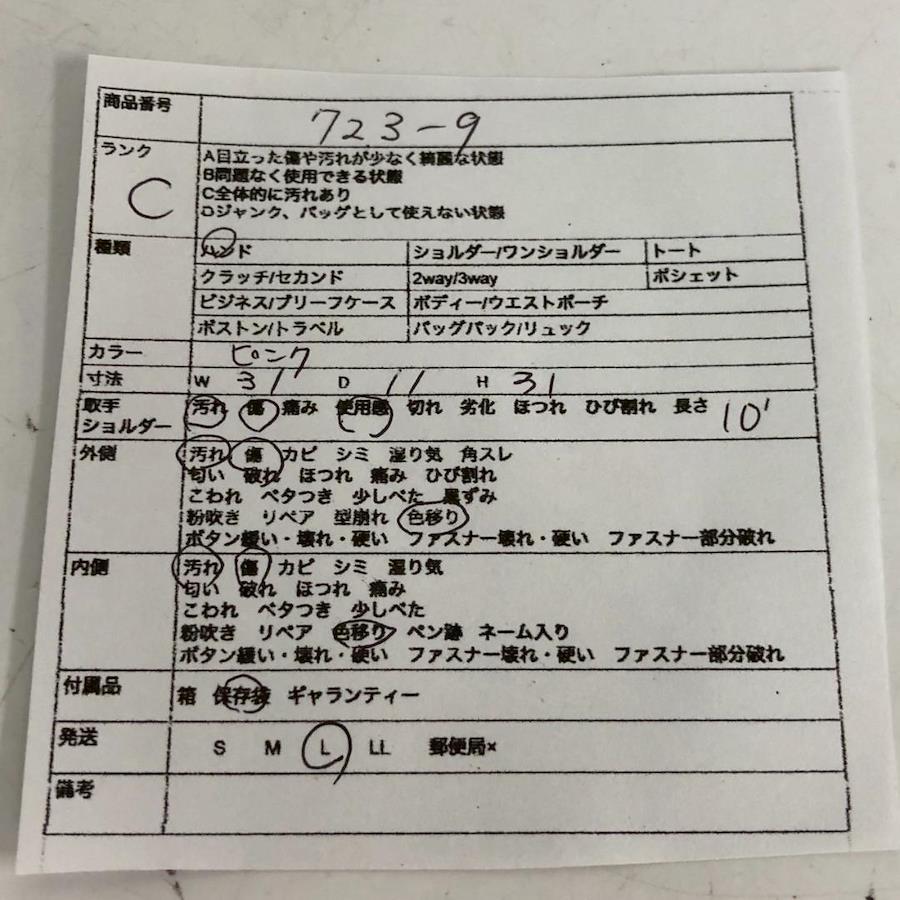 商品番号 723-9
ランク C
A目立った傷や汚れが少なく綺麗な状態
B問題なく使用できる状態
C全体的に汚れあり
Dジャンク、バッグとして使えない状態
種類 ハンド ショルダー/ワンショルダー トート
クラッチ/セカンド 2way/3way ポシェット
ビジネス/ブリーフケース ボディー/ウエストポーチ
ボストン/トラベル バッグパック/リュック
カラー ピンク
寸法 W 31 D 11 H 31
取手 汚れ 傷 痛み 使用感 切れ 劣化 ほつれ ひび割れ 長さ 10'
ショルダー
外側 汚れ 傷 カビ シミ 湿り気 角スレ
匂い 破れ ほつれ 痛み ひび割れ
こわれ ベタつき 少しべた 黒ずみ
粉吹き リペア 型崩れ 色移り
ボタン緩い・壊れ・硬い ファスナー壊れ・硬い ファスナー部分破れ
内側 汚れ 傷 カビ シミ 湿り気
匂い 破れ ほつれ 痛み
こわれ ベタつき 少しべた
粉吹き リペア 色移り ペン跡 ネーム入り
ボタン緩い・壊れ・硬い ファスナー壊れ・硬い ファスナー部分破れ
付属品 箱 保存袋 ギャランティー
発送 S M L LL 郵便局×
備考